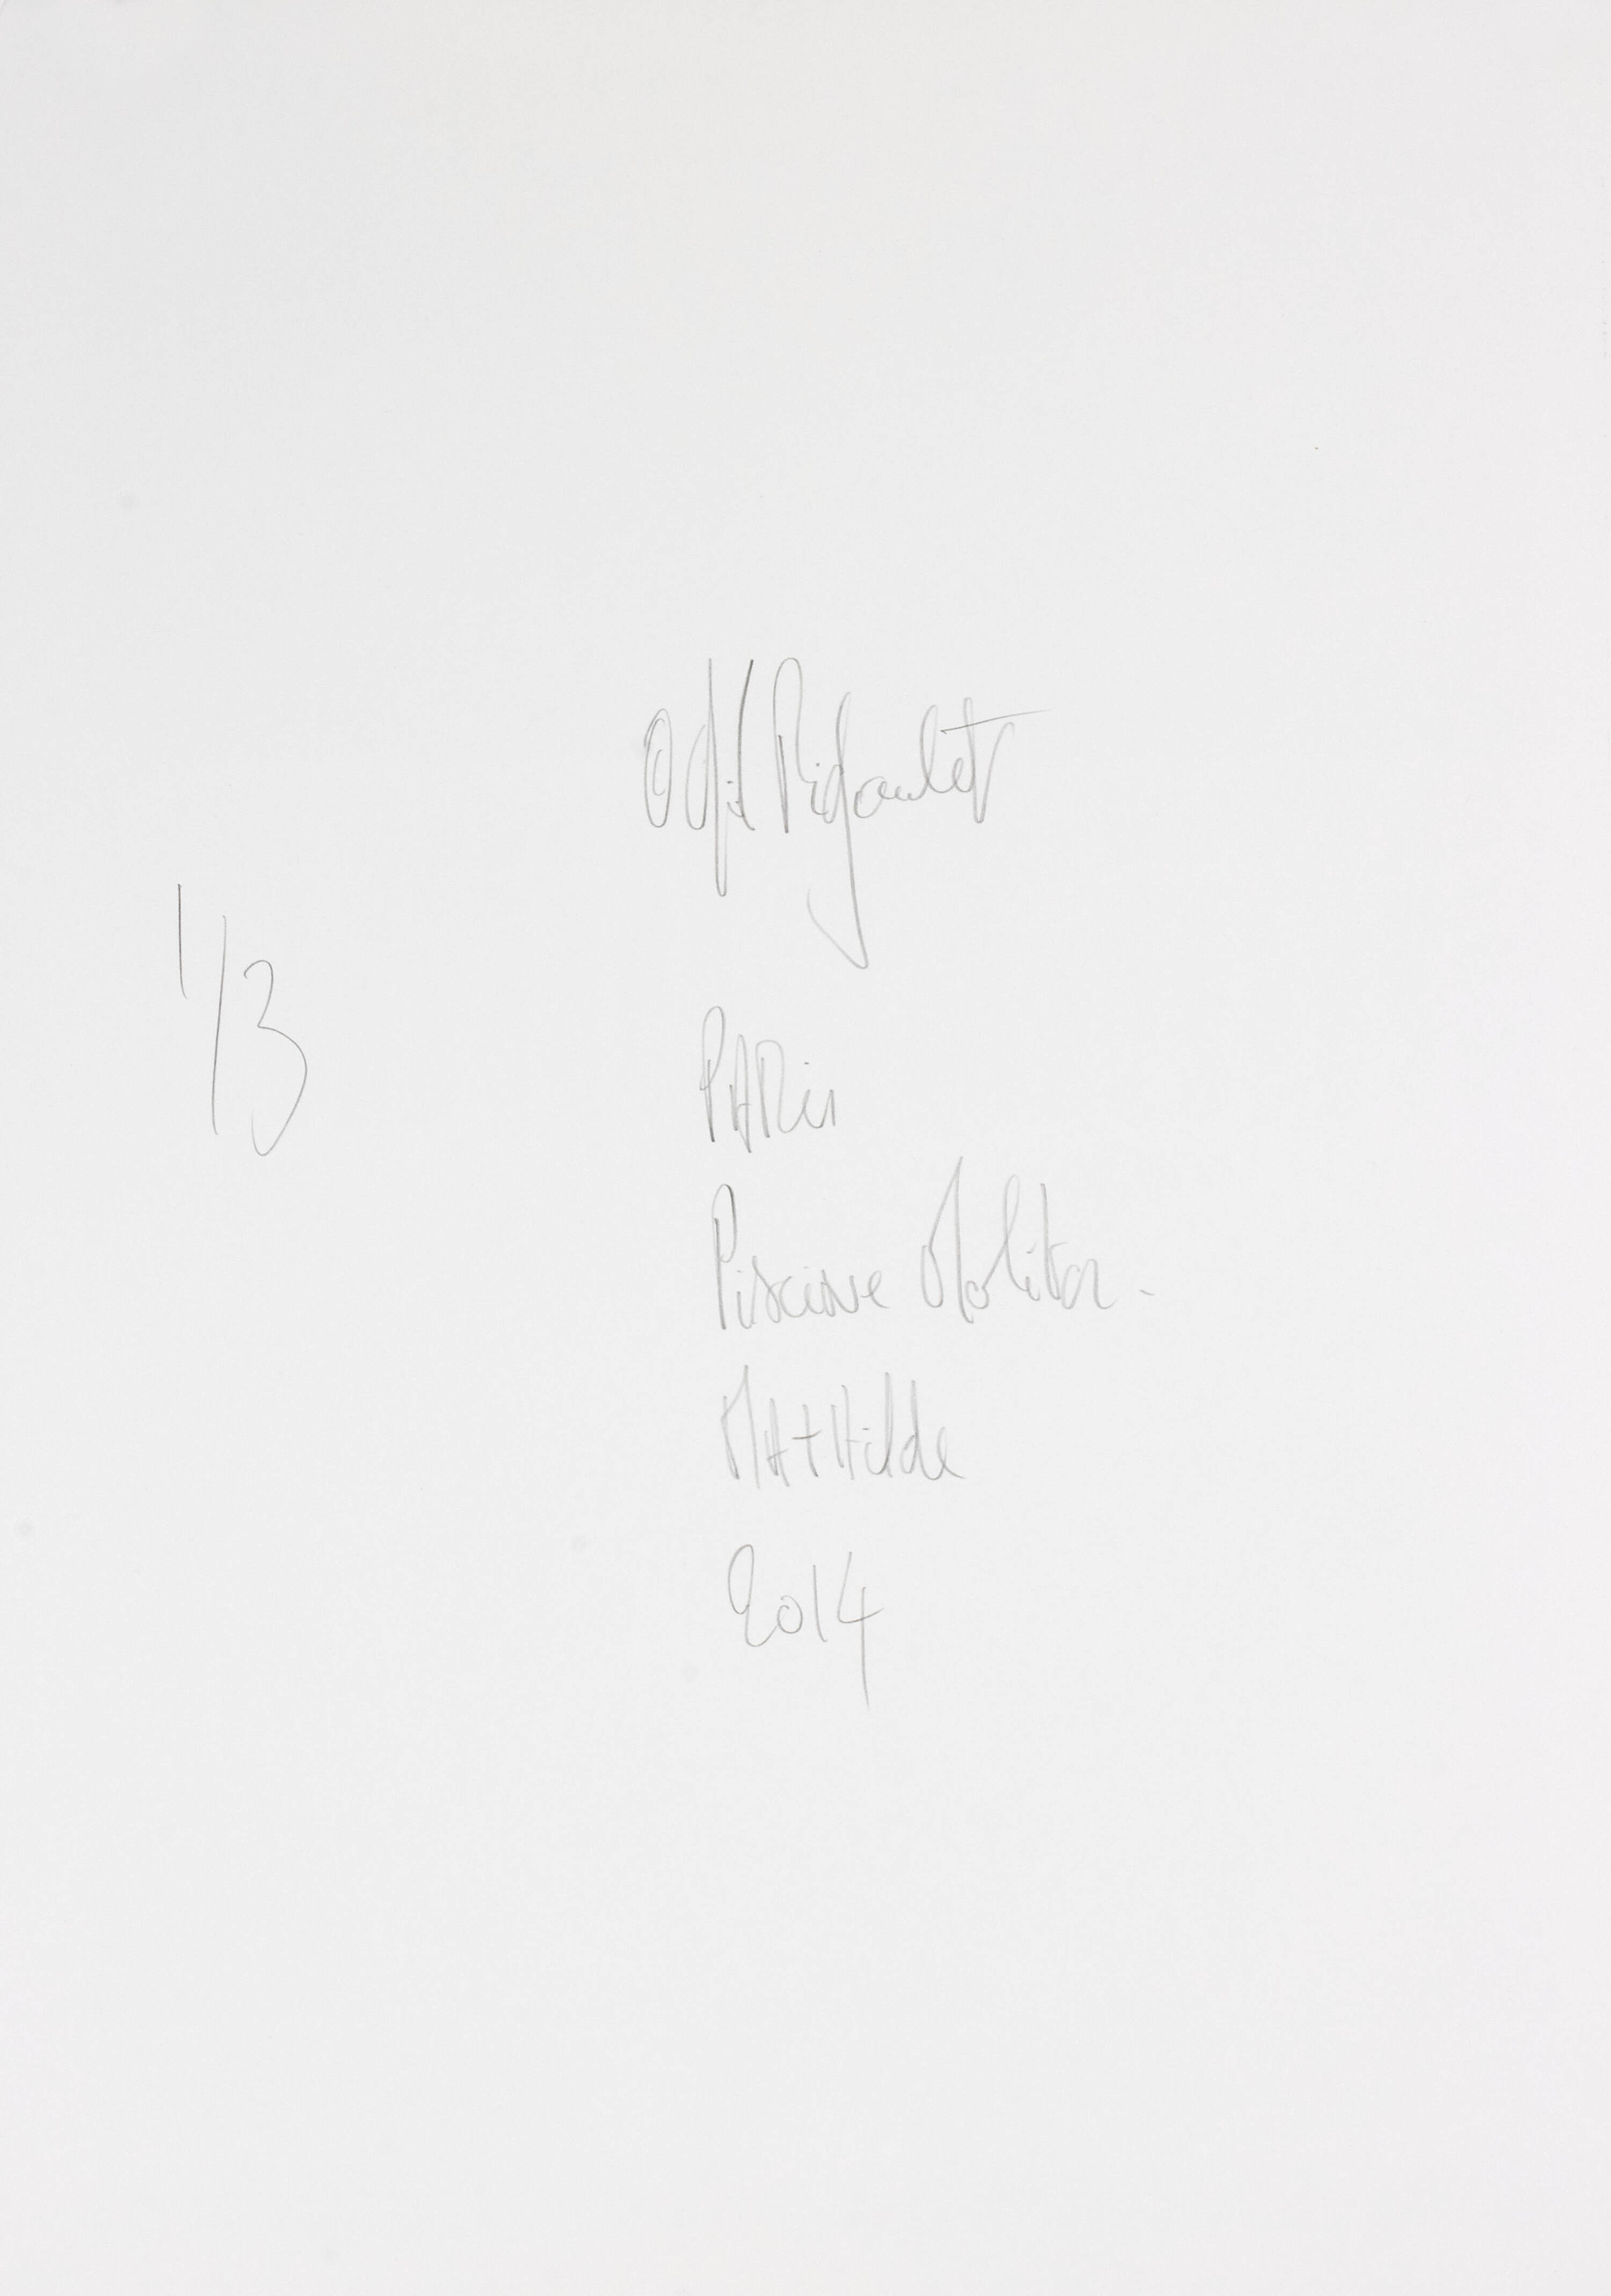 © Gil Rigoulet
1/3
PARis
Piscine Molitor.
MAtHilde
2014